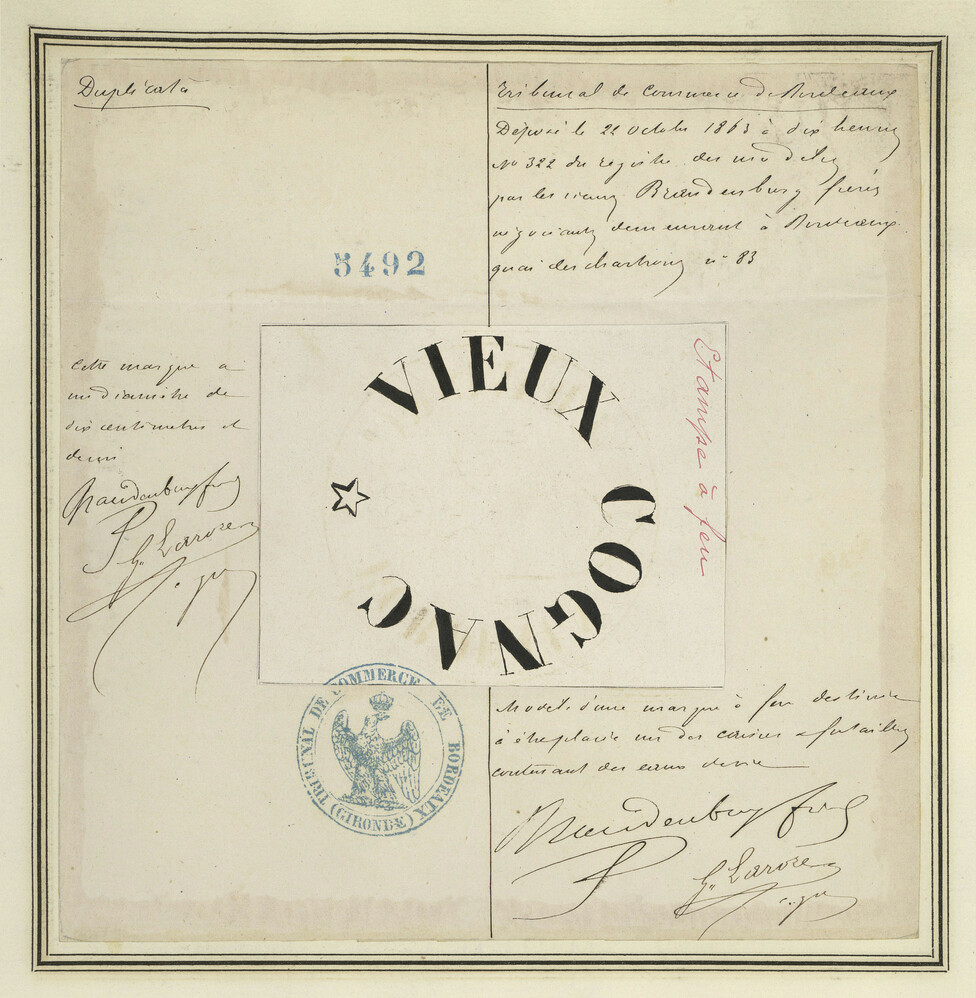 Duplicata
Tribunal de Commerce de Bordeaux
Déposé le 22 octobre 1863 à dix heures
No 322 du registre des modèles
par les sieurs Brandenburg frères
négociants demeurant à Bordeaux
quai des chartrons n° 83
5492
Cette marque a
un diamètre de
dix centimètres et
demi
Brandenburg frères
VIEUX COGNAC
Etampe à feu
TRIBUNAL DE COMMERCE DE BORDEAUX
(GIRONDE)
Modèle d'une marque à feu destinée
à être placée sur des caisses & futailles
contenant des eaux de vie
Brandenburg frères